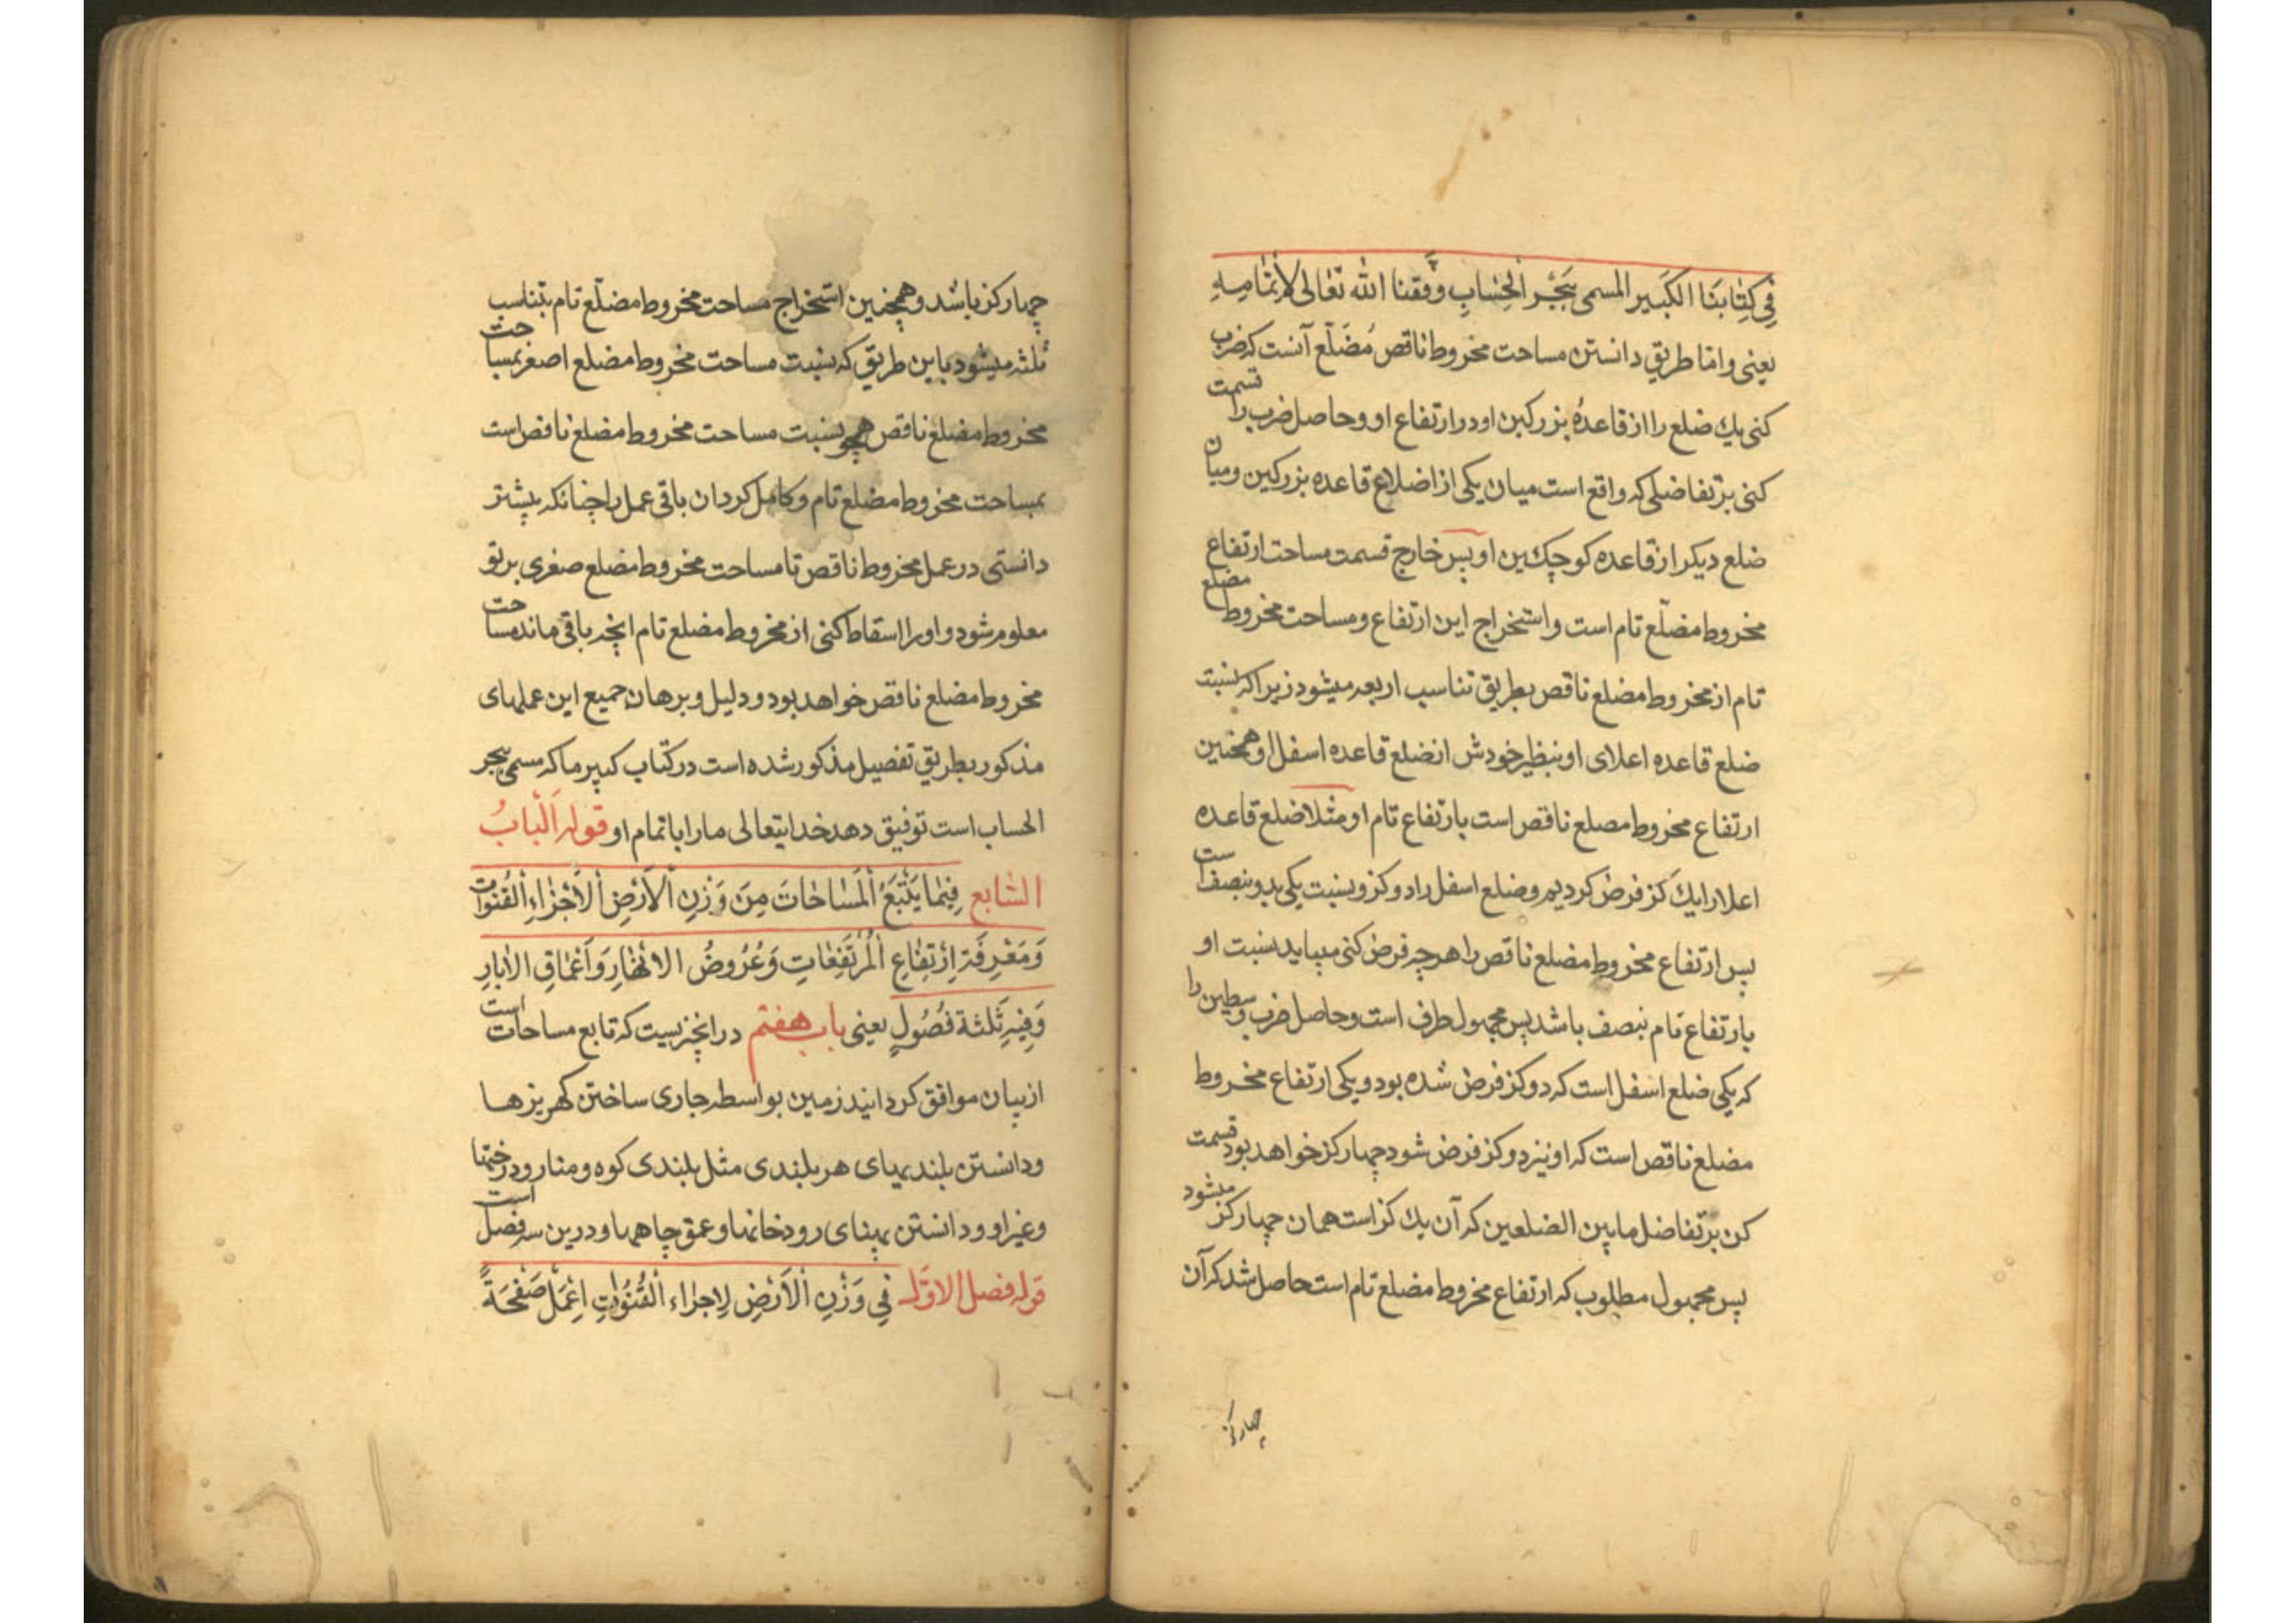 فِی کِتٰابنَا الکَبیر المسمی بِبَحْر الْحِسٰابِ وَفَّقنا الله تعٰالی لاِتْمٰامِهِ
یعنی واما طریق دانستن مساحت مخروط ناقص مُضَلّع آنست که ضرب
کنی یك ضلع را از قاعدهٔ بزرکین او در ارتفاع او و حاصل ضرب را قسمت
کنی بر تفاضلی که واقع است میان یکی از اضلاع قاعده بزرکین و میان
ضلع دیکر از قاعده کوچك‌ین او پس خارج قسمت مساحت ارتفاع
مخروط مضلّع تام است و استخراج این ارتفاع و مساحت مخروط مضلع
تام از مخروط مضلع ناقص بطریق تناسب اربعه میشود زیراکه نسبت
ضلع قاعده اعلای او بنظیر خودش از ضلع قاعده اسفل او همچنین
ارتفاع مخروط مضلع ناقص است بارتفاع تام او مثلا ضلع قاعده
اعلا را یك کز فرض کردیم و ضلع اسفل را دو کز و نسبت یکی بدو بنصف است
پس ارتفاع مخروط مضلع ناقص را هرچه فرض کنی میباید نسبت او
بارتفاع تام بنصف باشد پس مجهول طرف است و حاصل ضرب وسطین را
که یکی ضلع اسفل است که دو کز فرض شده بود و یکی ارتفاع مخروط
مضلع ناقص است که او نیز دو کز فرض شود چهار کز خواهد بود قسمت
کن بر تفاضل مابین الضلعین که آن یك کز است همان چهار کز میشود
پس مجهول مطلوب که ارتفاع مخروط مضلع تام است حاصل شد که آن
چهار کز
چهار کز باشد و همچنین استخراج مساحت مخروط مضلّع تام بتناسب
ثلثه میشود باین طریق که نسبت مساحت مخروط مضلع اصغر بمساحت
مخروط مضلع ناقص همچو نسبت مساحت مخروط مضلع ناقص است
بمساحت مخروط مضلع تام و کامل کردان باقی عمل را چنانکه پیشتر
دانستی در عمل مخروط ناقص تا مساحت مخروط مضلع صغری بر تو
معلوم شود و او را اسقاط کنی از مخروط مضلع تام انچه باقی ماند مساحت
مخروط مضلع ناقص خواهد بود و دلیل و برهان جمیع این عملهای
مذکور بطریق تفصیل مذکور شده است در کتاب کبیر ما که مسمی ببحر
الحساب است توفیق دهد خدایتعالی ما را باتمام او قوله اَلْبابُ
السّٰابع فِیمٰا یَتْبَعُ اَلْمَسٰاحٰاتَ مِنَ وَزْنِ اْلاَرْضِ اْلاَجْزٰاءِ اْلقُنَوات
وَمَعْرِفَة اِرْتِفٰاعِ اَلْمُرتَفِعٰاتِ وَعُرُوضُ الانْهٰارِ وَاَعْمٰاقِ الاٰبارِ
وَفِیهِ ثَلٰثة فُصُولٍ یعنی باب هفتم در انچیزیست که تابع مساحات است
از بیان موافق کردانید زمین بواسطه جاری ساختن کهریزها
ودانستن بلندیهای هر بلندی مثل بلندی کوه و منار و درختها
وغیر او و دانستن پهنای رودخانها و عمق چاهها و درین سه فصل است
قوله فصل الاوّل فِی وَزْنِ اْلاَرْضِ لاِجرٰاء اْلقُنُوٰاتِ اِعْمَلْ صَفْحَةً